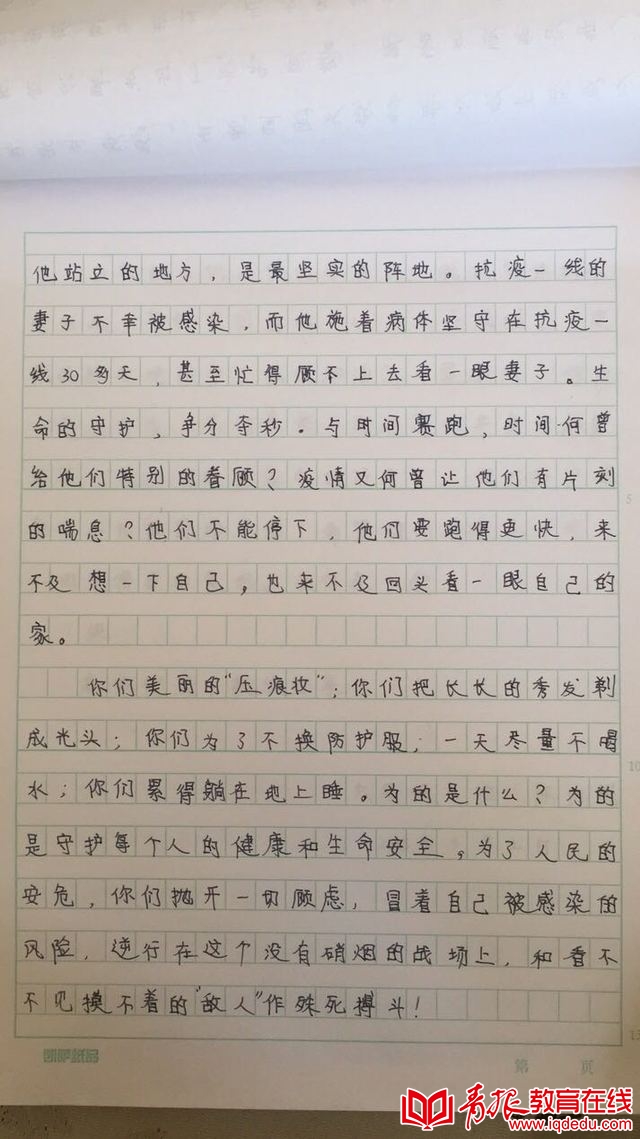 他站立的地方，是最坚实的阵地。抗疫一线的
妻子不幸被感染，而他拖着病体坚守在抗疫一
线30多天，甚至忙得顾不上去看一眼妻子。生
命的守护，争分夺秒。与时间赛跑，时间何曾
给他们特别的眷顾？疫情又何曾让他们有片刻
的喘息？他们不能停下，他们要跑得更快，来
不及想一下自己，也来不及回头看一眼自己的
家。
你们美丽的“压痕妆”；你们把长长的秀发剃
成光头；你们为了不换防护服，一天尽量不喝
水；你们累得躺在地上睡。为的是什么？为的
是守护每个人的健康和生命安全。为了人民的
安危，你们抛开一切顾虑，冒着自己被感染的
风险，逆行在这个没有硝烟的战场上，和看不
不见摸不着的“敌人”作殊死搏斗！
5
10
15
凯萨纸品
第 页
青报教育在线
www.iqdedu.com